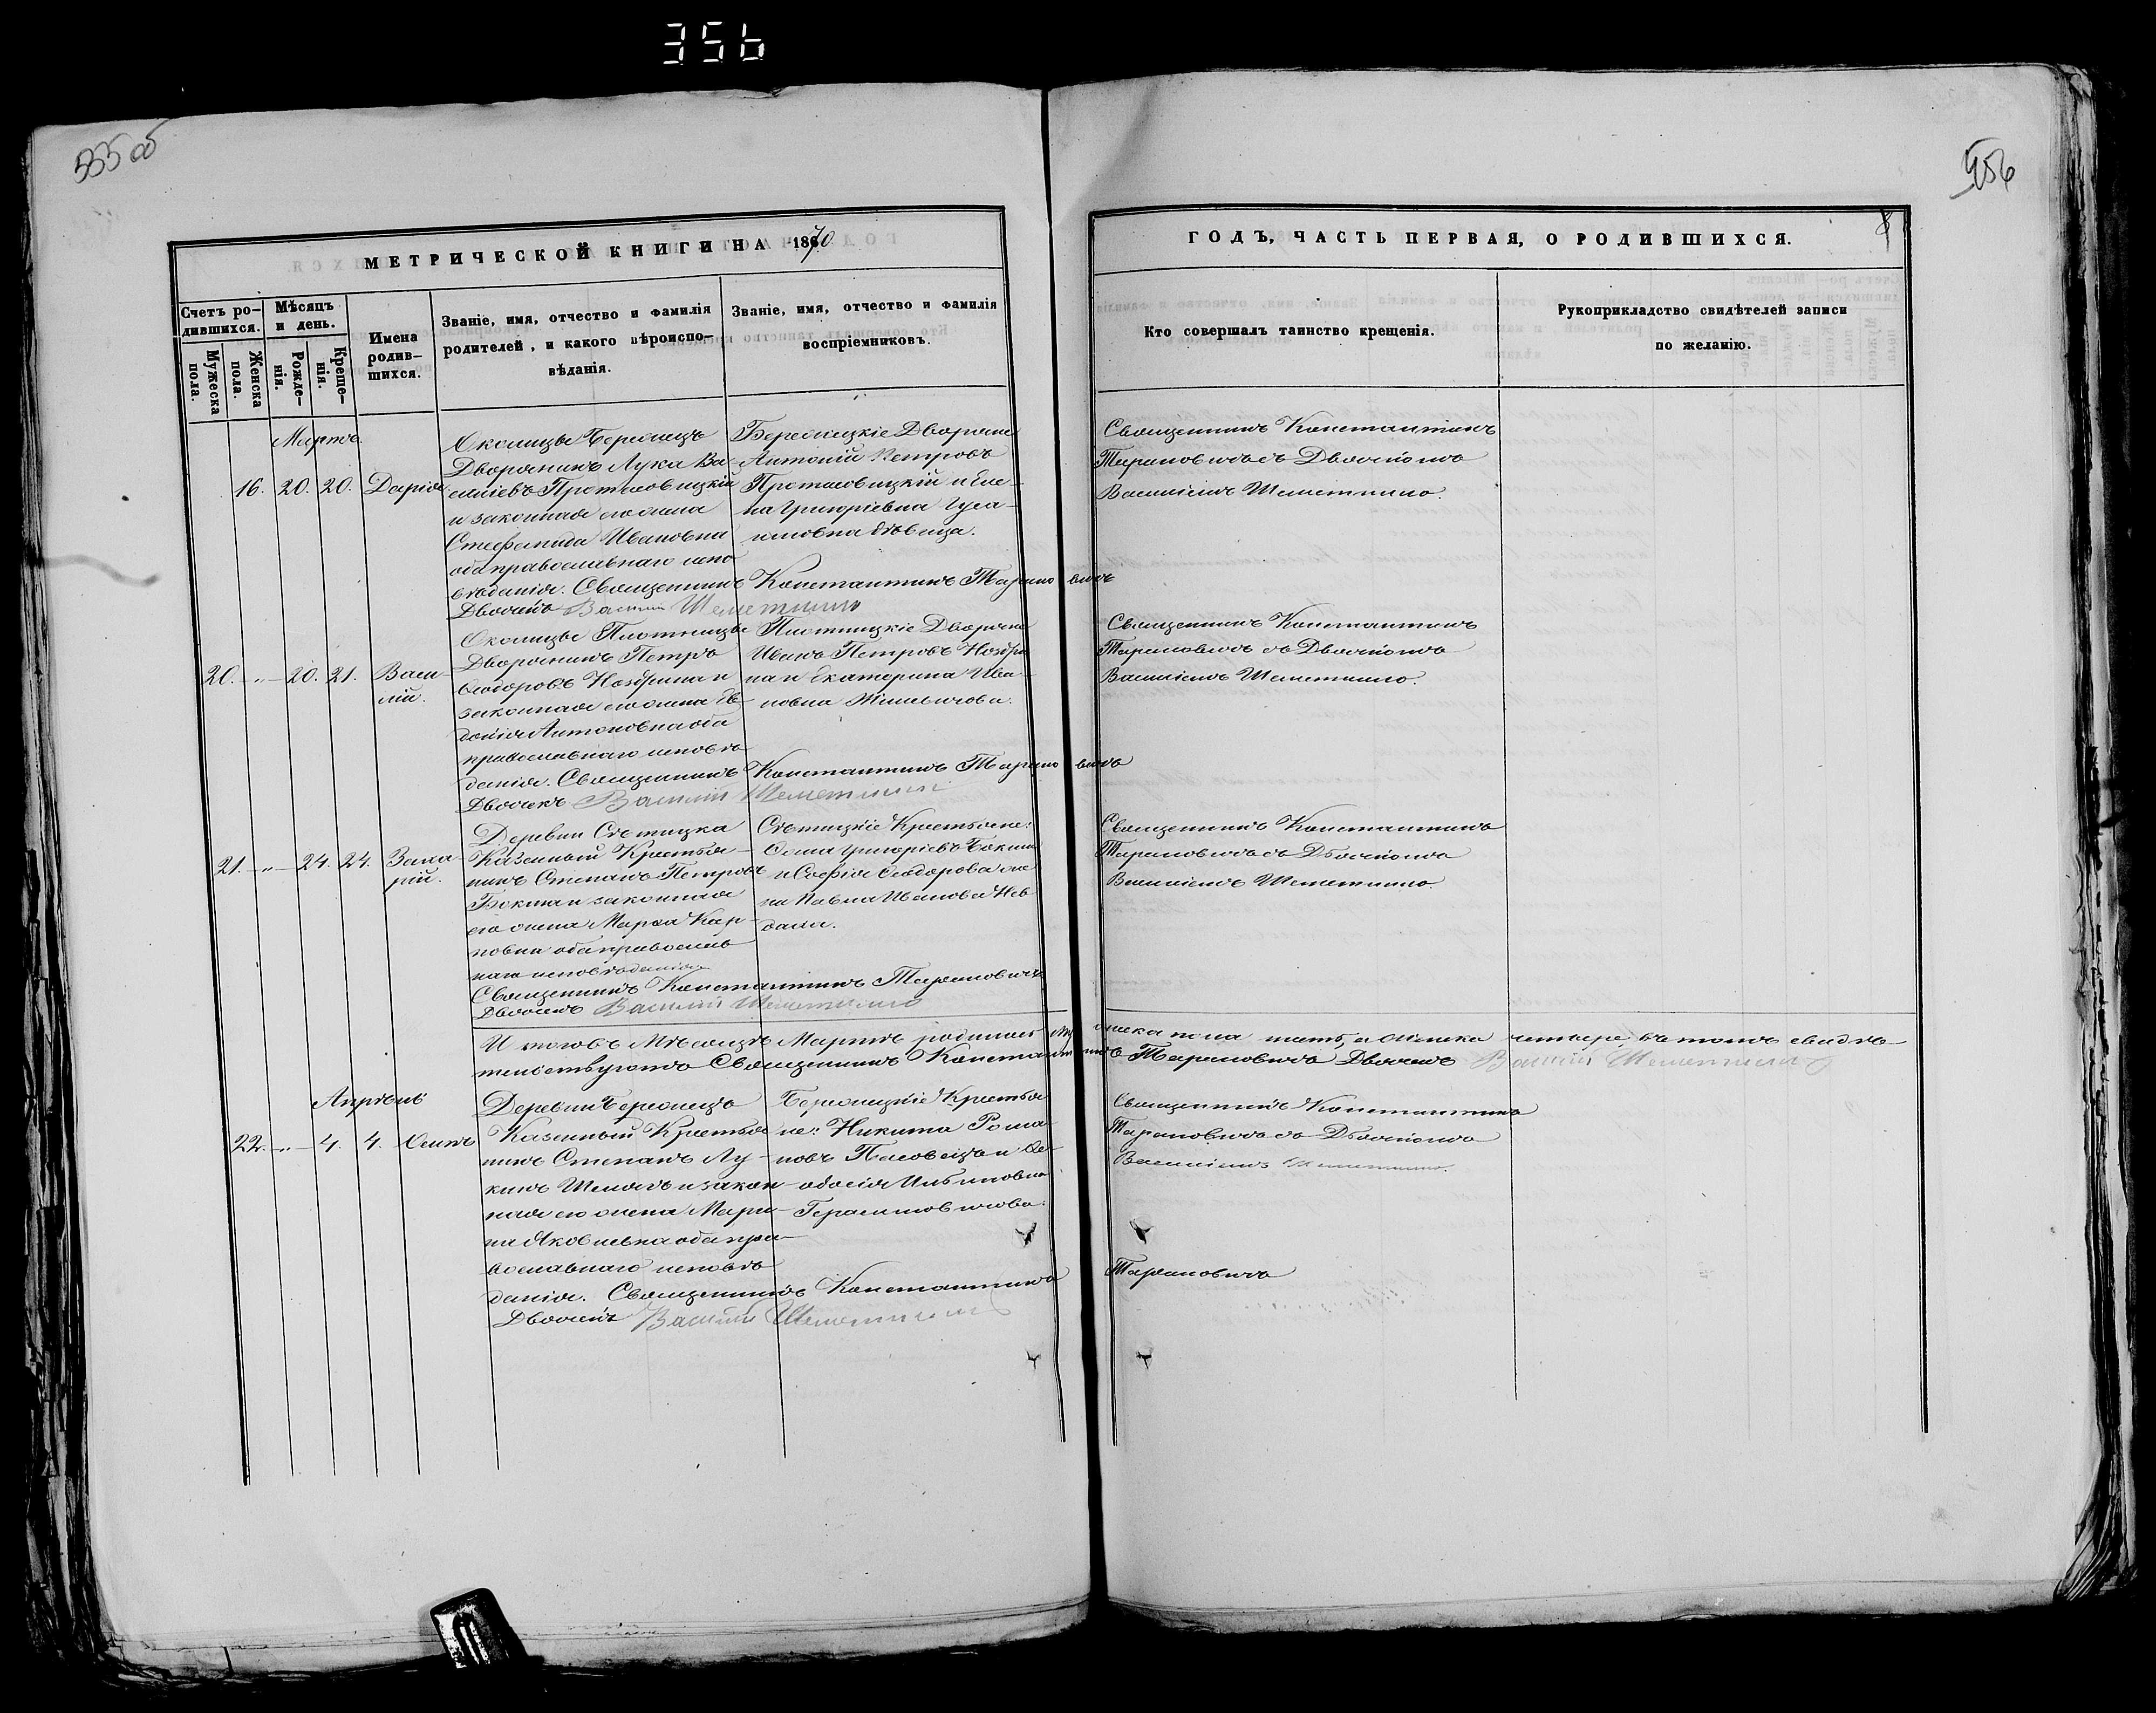 356
355 об
356
8
МЕТРИЧЕСКОЙ КНИГИ НА 1870
ГОДЪ, ЧАСТЬ ПЕРВАЯ, О РОДИВШИХСЯ.
Счетъ ро-
дившихся.
Мужеска
пола.
Женска
пола.
Мѣсяцъ
и день.
Рожде-
нія.
Креще-
нія.
Имена
родив-
шихся.
Званіе, имя, отчество и фамилія
родителей, и какого вѣроиспо-
вѣданія.
Званіе, имя, отчество и фамилія
воспріемниковъ.
Кто совершалъ таинство крещенія.
Рукоприкладство свидѣтелей записи
по желанію.
Мартъ.
16. 20. 20. Дарія
Околицы Бережецъ
Дворянинъ Лука Ва-
силіевъ Протасовицкій
и законная его жена
Стефанида Ивановна
оба православнаго испо
вѣданія. Священникъ Константинъ Тарановичъ
Дьячекъ Василій
Дворяне
Антоній Петровъ
Протасовицкій и Еле-
на Григоріевна
дѣвица.
Священникъ Константинъ
Тарановичъ съ Дьячкомъ
Василіемъ
20. " 20. 21. Васи-
лій.
Околицы Плотницы
Дворянинъ Петръ
Ѳеодоровъ и
законная его жена Ев-
докія Антоновна оба
православнаго исповѣ
данія. Священникъ Константинъ Тарановичъ
Дьячекъ Василій
Плотницкіе Дворяне
Иванъ Петровъ
на и Екатерина Ива-
новна
Священникъ Константинъ
Тарановичъ съ Дьячкомъ
Василіемъ
21. " 24. 24. Заха-
рій.
Деревни
Казенный Крестья-
нинъ Степанъ Петровъ
и законная
его жена Марѳа Кар-
повна оба православ
наго исповѣданія
Священникъ Константинъ Тарановичъ
Дьячекъ Василій
Крестьяне:
Григоріевъ
и Софія Ѳеодорова же
на Павла Иванова
Священникъ Константинъ
Тарановичъ съ Дьячкомъ
Василіемъ
Мѣсяцѣ Мартѣ родилось Мужеска пола шесть, а Женска четыре, въ томъ свидѣ-
тельствуютъ Священникъ Константинъ Тарановичъ Дьячекъ Василій
Апрѣль
22. " 4. 4. Осипъ
Деревни Бережецъ
Казенный Крестья
нинъ Степанъ Лу-
кинъ и закон
ная его жена Мари-
на Яковлевна оба пра-
вославнаго исповѣ
данія. Священникъ Константинъ
Тарановичъ
Дьячекъ Василій
Крестья
не: Никита Рома-
новъ и Ѳе-
одосія Ильиновна
Герасимовичова.
Священникъ Константинъ
Тарановичъ съ Дьячкомъ
Василіемъ